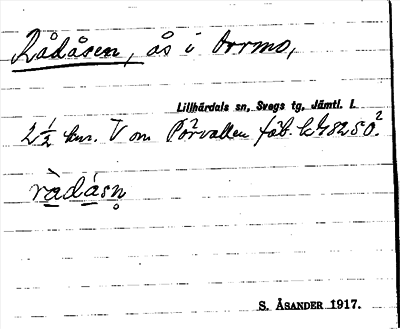 Rådåsen, ås i Orrmo,
Lillhärdals sn, Svegs tg, Jämtl. l.
2½ km. V om Pörvallen fäb.
rådåsn̥
S. ÅSANDER 1917.